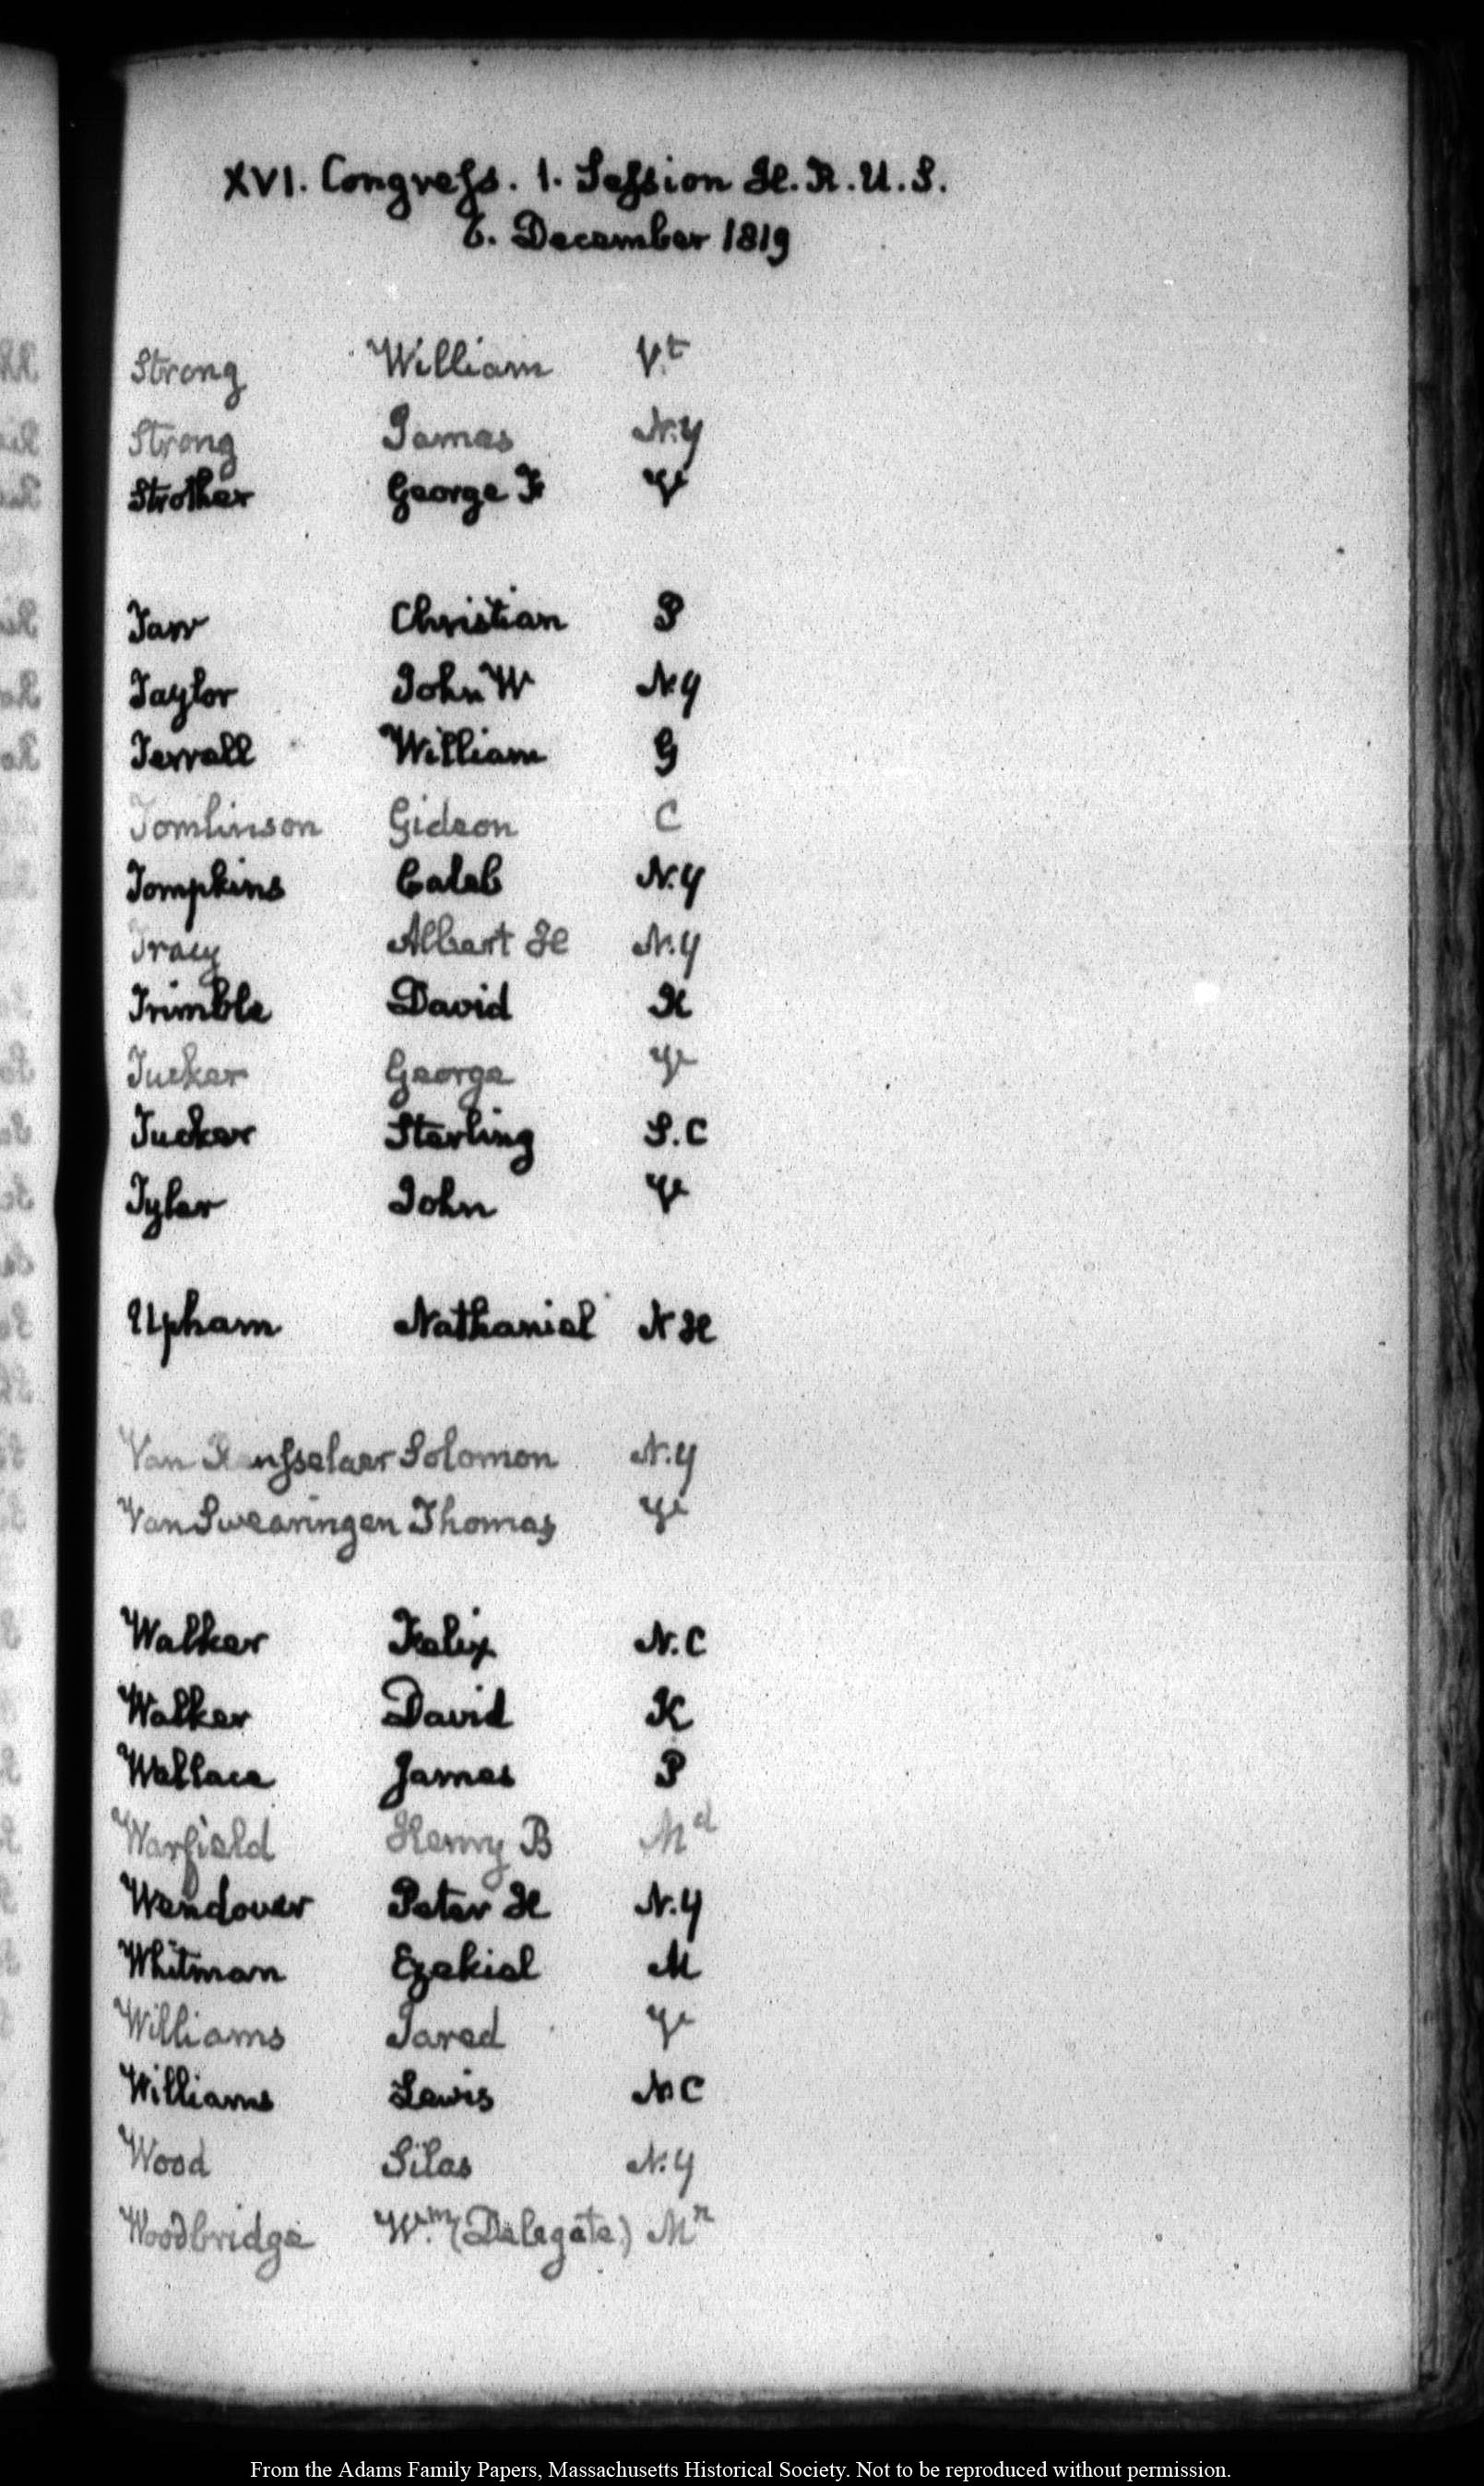 XVI. Congress. 1. Session H.R.U.S.
6. December 1819
Strong William V.t
Strong James N.Y
Strother George F V
Tarr Christian P
Taylor John W N.Y
Terrell William G
Tomlinson Gideon C
Tompkins Caleb N.Y
Tracy Albert H N.Y
Trimble David K
Tucker George V
Tucker Sterling S.C
Tyler John V
Upham Nathaniel N H
Van Rensselaer Solomon N.Y
Van Swearingen Thomas V
Walker Felix N.C
Walker David K
Wallace James P
Warfield Henry B Md
Wendover Peter H N.Y
Whitman Ezekiel M
Williams Jared V
Williams Lewis N C
Wood Silas N.Y
Woodbridge W.m (Delegate) Mn
From the Adams Family Papers, Massachusetts Historical Society. Not to be reproduced without permission.